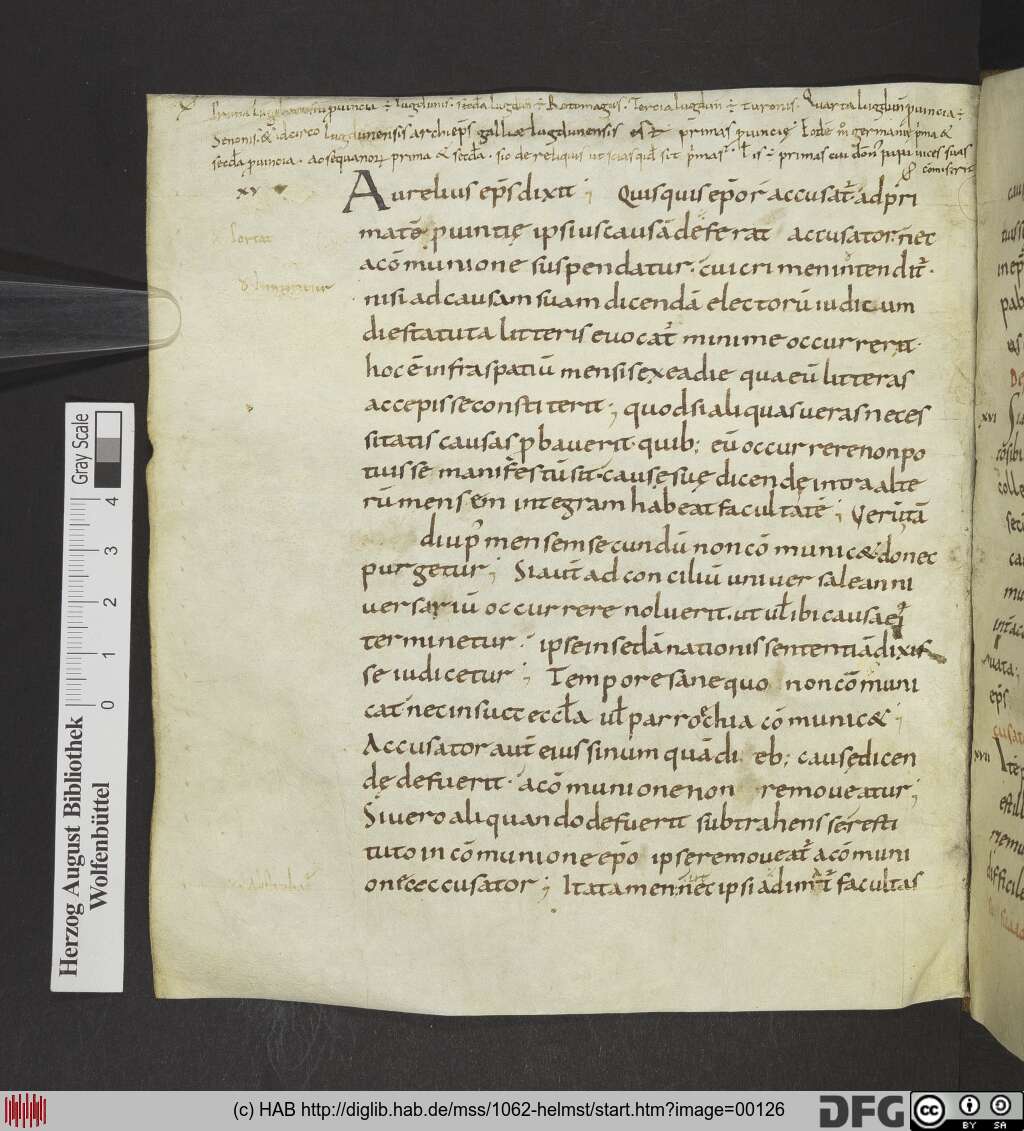 Prima Lugdunensis puincia ÷ lugdunis. secda lugdun ÷ Rotomagus. Tercia lugdun ÷ turonis. Quarta lugdun puincia ÷
Senonis. & idcirco lugdunensis archieps galliae lugdunensis est primas puincię. Eodē m germania pma &
secda puincia. ao sequanorum prima & secda. sic de reliquis ut scias qd sit pmas. ÷ primas cui vices suas
cōmiserit
XV
Aurelius eps dixit; Quisquis epor accusat ad pri
matē puintię ipsius causā deferat accusator. nec
a cōmunione suspendatur. cui crimen intendit.
nisi ad causam suam dicendā electorū iudicum
die statuta litteris evocat minime occurrerit.
hoc ē infra spatiū mensis ex ea die qua eū litteras
accepisse constiterit; quod si aliquas veras neces
sitatis causas pbaverit. quib; eū occurrere non po
tuisse manifestū sit. causę suę dicendę intra alte
rū mensem integram habeat facultatē; Verū tā
diu p mensem secundū non cōmunic& donec
purgetur; Si aut ad conciliū universale anni
versariū occurrere noluerit. ut vl ibi causa ei
terminetur. ipse in se dānationis sententiā dixis
se iudicetur; Tempore sane quo non cōmuni
cat nec in suc eccla ul parrochia cōmunic&;
Accusator aut eius si numquā dieb; causę dicen
dę defuerit. a cōmunione non removeatur;
Si vero aliquando defuerit subtrahens se resti
tuto in cōmunione epō ipse removeat a cōmuni
one accusator; Ita tamen nec ipsi adimat facultas
Herzog August Bibliothek
Wolfenbüttel
Gray Scale
0 1 2 3 4
XVI
XVII
(c) HAB http://diglib.hab.de/mss/1062-helmst/start.htm?image=00126
DFG
cc BY SA